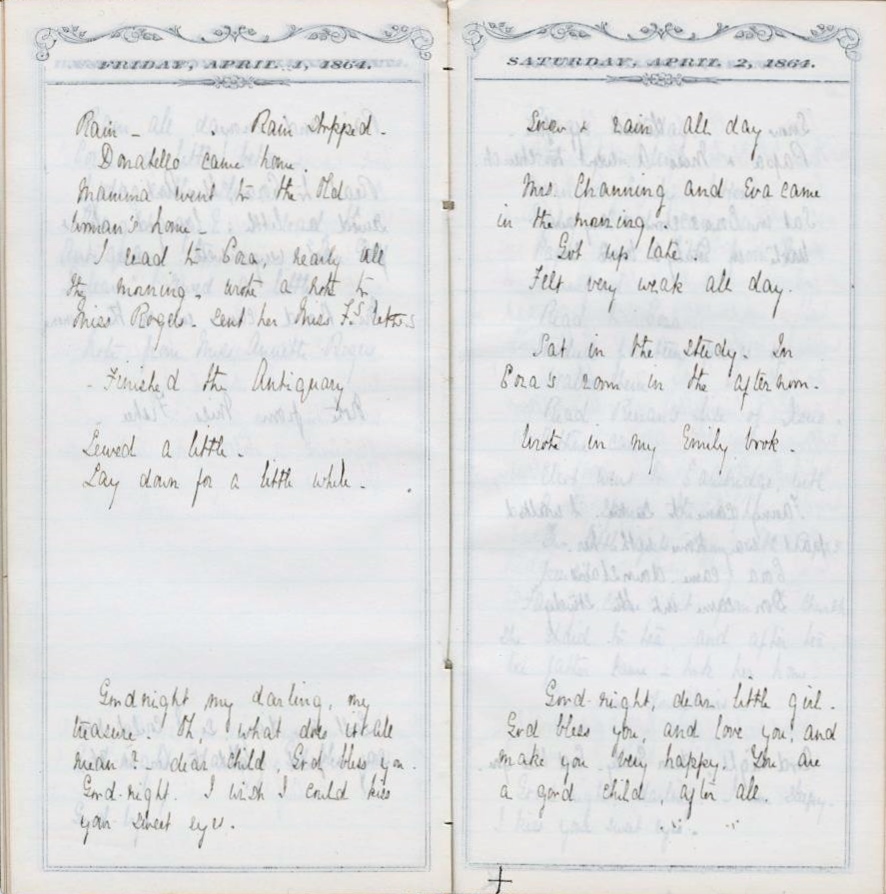 FRIDAY, APRIL 1, 1864.
Rain – Rain stopped.
Donatello came home.
Mamma went to the Old
Woman's home –
I read to Ezra, nearly all
the morning. wrote a note to
Miss Rogers. sent her Miss F.'s letters
- Finished the Antiquary
Sewed a little.
Lay down for a little while –
Good night my darling, my
treasure. Oh, what does it all
mean? – dear child, God bless you.
Good-night. I wish I could kiss
your sweet eyes.
SATURDAY, APRIL 2, 1864.
Snow & rain all day
Mrs. Channing and Eva came
in the morning.
Got up late.
Felt very weak all day.
Sat in the study. In
Ezra's room in the afternoon.
Wrote in my Emily book.
Good-night, dear little girl.
God bless you, and love you, and
make you very happy. You are
a good child, after all.